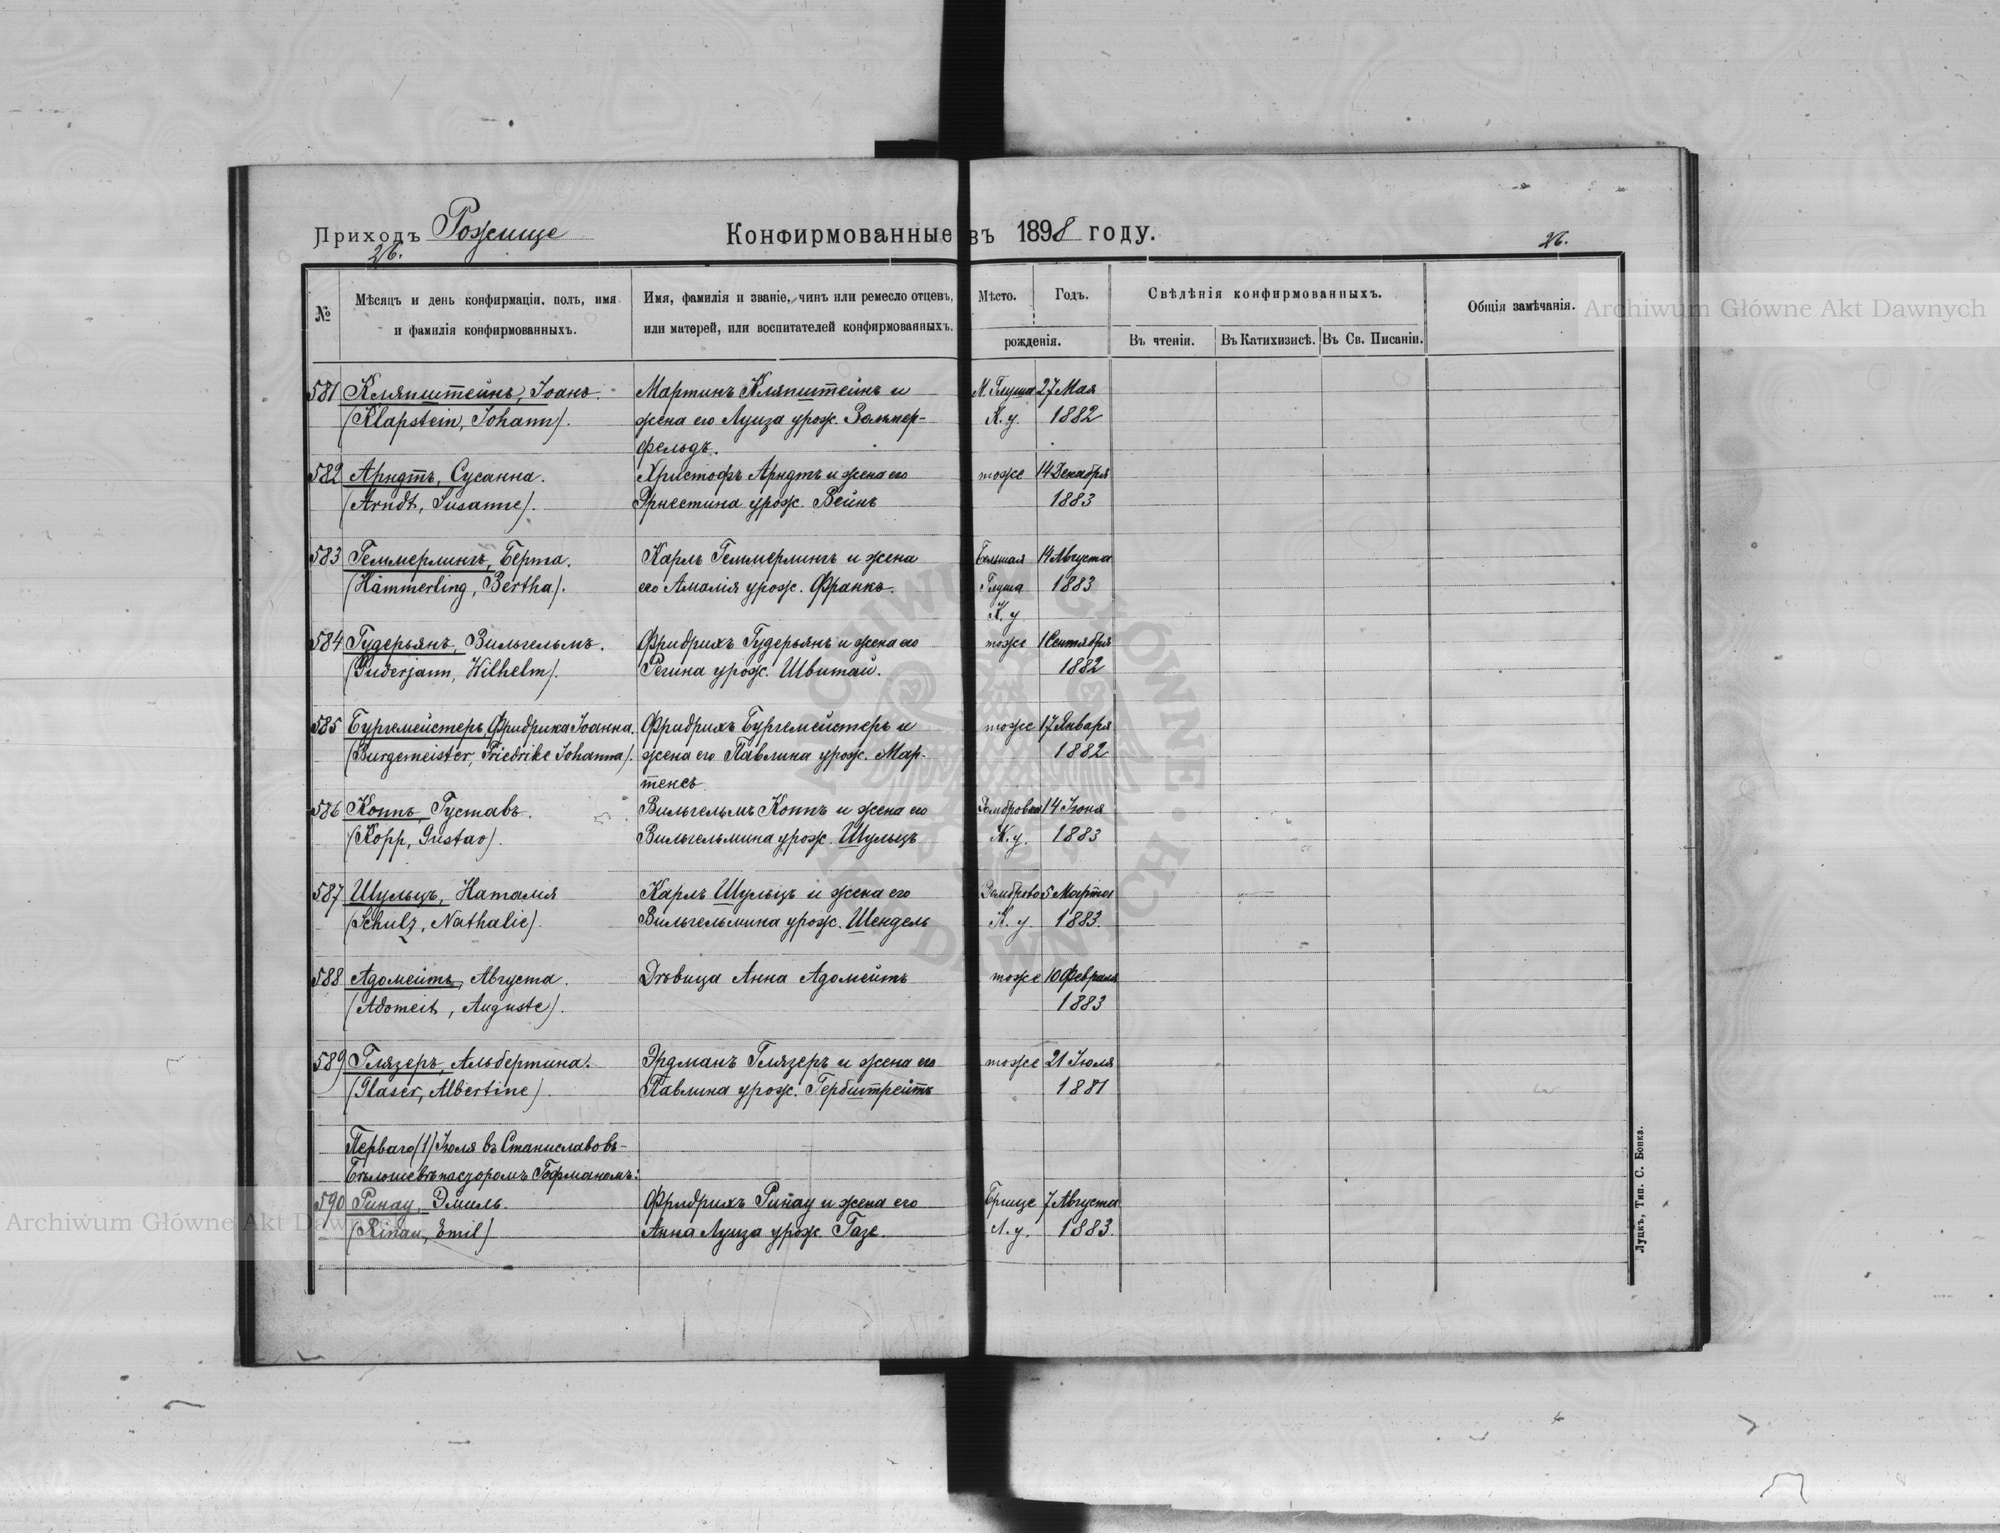 Приходъ Рожище
Конфирмованные въ 1898 году.
26.
26.
№
Мѣсяцъ и день конфирмаціи, полъ, имя
и фамилія конфирмованныхъ.
Имя, фамилія и званіе, чинъ или ремесло отцевъ,
или матерей, или воспитателей конфирмованныхъ.
Мѣсто.
Годъ.
рожденія.
Свѣдѣнія конфирмованныхъ.
Въ чтеніи.
Въ Катихизисѣ.
Въ Св. Писаніи.
Общія замѣчанія.
581 Кляпштейнъ, Іоанъ. Мартинъ Кляпштейнъ и М. Глуша 27 Мая
(Klapstein, Johann). жена его Луиза урож. Зоммер- К. у. 1882
фельдъ.
582 Арндтъ, Сусанна. Христофъ Арндтъ и жена его тоже 14 Декабря
(Arndt, Susanne). Эрнестина урож. Вейнъ 1883
583 Геммерлингъ, Берта. Карлъ Геммерлингъ и жена Большая 14 Августа
(Hämmerling, Bertha). его Амалія урож. Франкъ. Глуша 1883
К. у.
584 Гудерьянъ, Вильгельмъ. Фридрихъ Гудерьянъ и жена его тоже 1 Сентября
(Guderjann, Wilhelm). Регина урож. Швитай. 1882
585 Бургемейстеръ, Фридрика Іоанна. Фридрихъ Бургемейстеръ и тоже 17 Января
(Burgemeister, Friedrike Johanna). жена его Павлина урож. Мар- 1882
тенсъ
586 Коппъ, Густавъ. Вильгельмъ Коппъ и жена его 14 Іюня
(Kopp, Gustav). Вильгельмина урож. Шульцъ К. у. 1883
587 Шульцъ, Наталія Карлъ Шульцъ и жена его 5 Марта
(Schulz, Nathalie). Вильгельмина урож. Шендель К. у. 1883.
588 Адомейтъ, Августа. Дѣвица Анна Адомейтъ тоже 10 Февраля
(Adomeit, Auguste). 1883
589 Глязеръ, Альбертина. Эрдманъ Глязеръ и жена его тоже 21 Іюля
(Glaser, Albertine). Павлина урож. Гербштрейтъ 1881
Перваго (1) Іюля въ Станиславовъ-
пасторомъ Гофманомъ:
590 Ринау, Эмиль. Фридрихъ Ринау и жена его 7 Августа
(Rinau, Emil) Анна Луиза урож. Газе. Л. у. 1883.
Луцкъ, Тип. С. Бонка.
Archiwum Główne Akt Dawnych
Archiwum Główne Akt Dawnych
ARCHIWUM GŁÓWNE AKT DAWNYCH